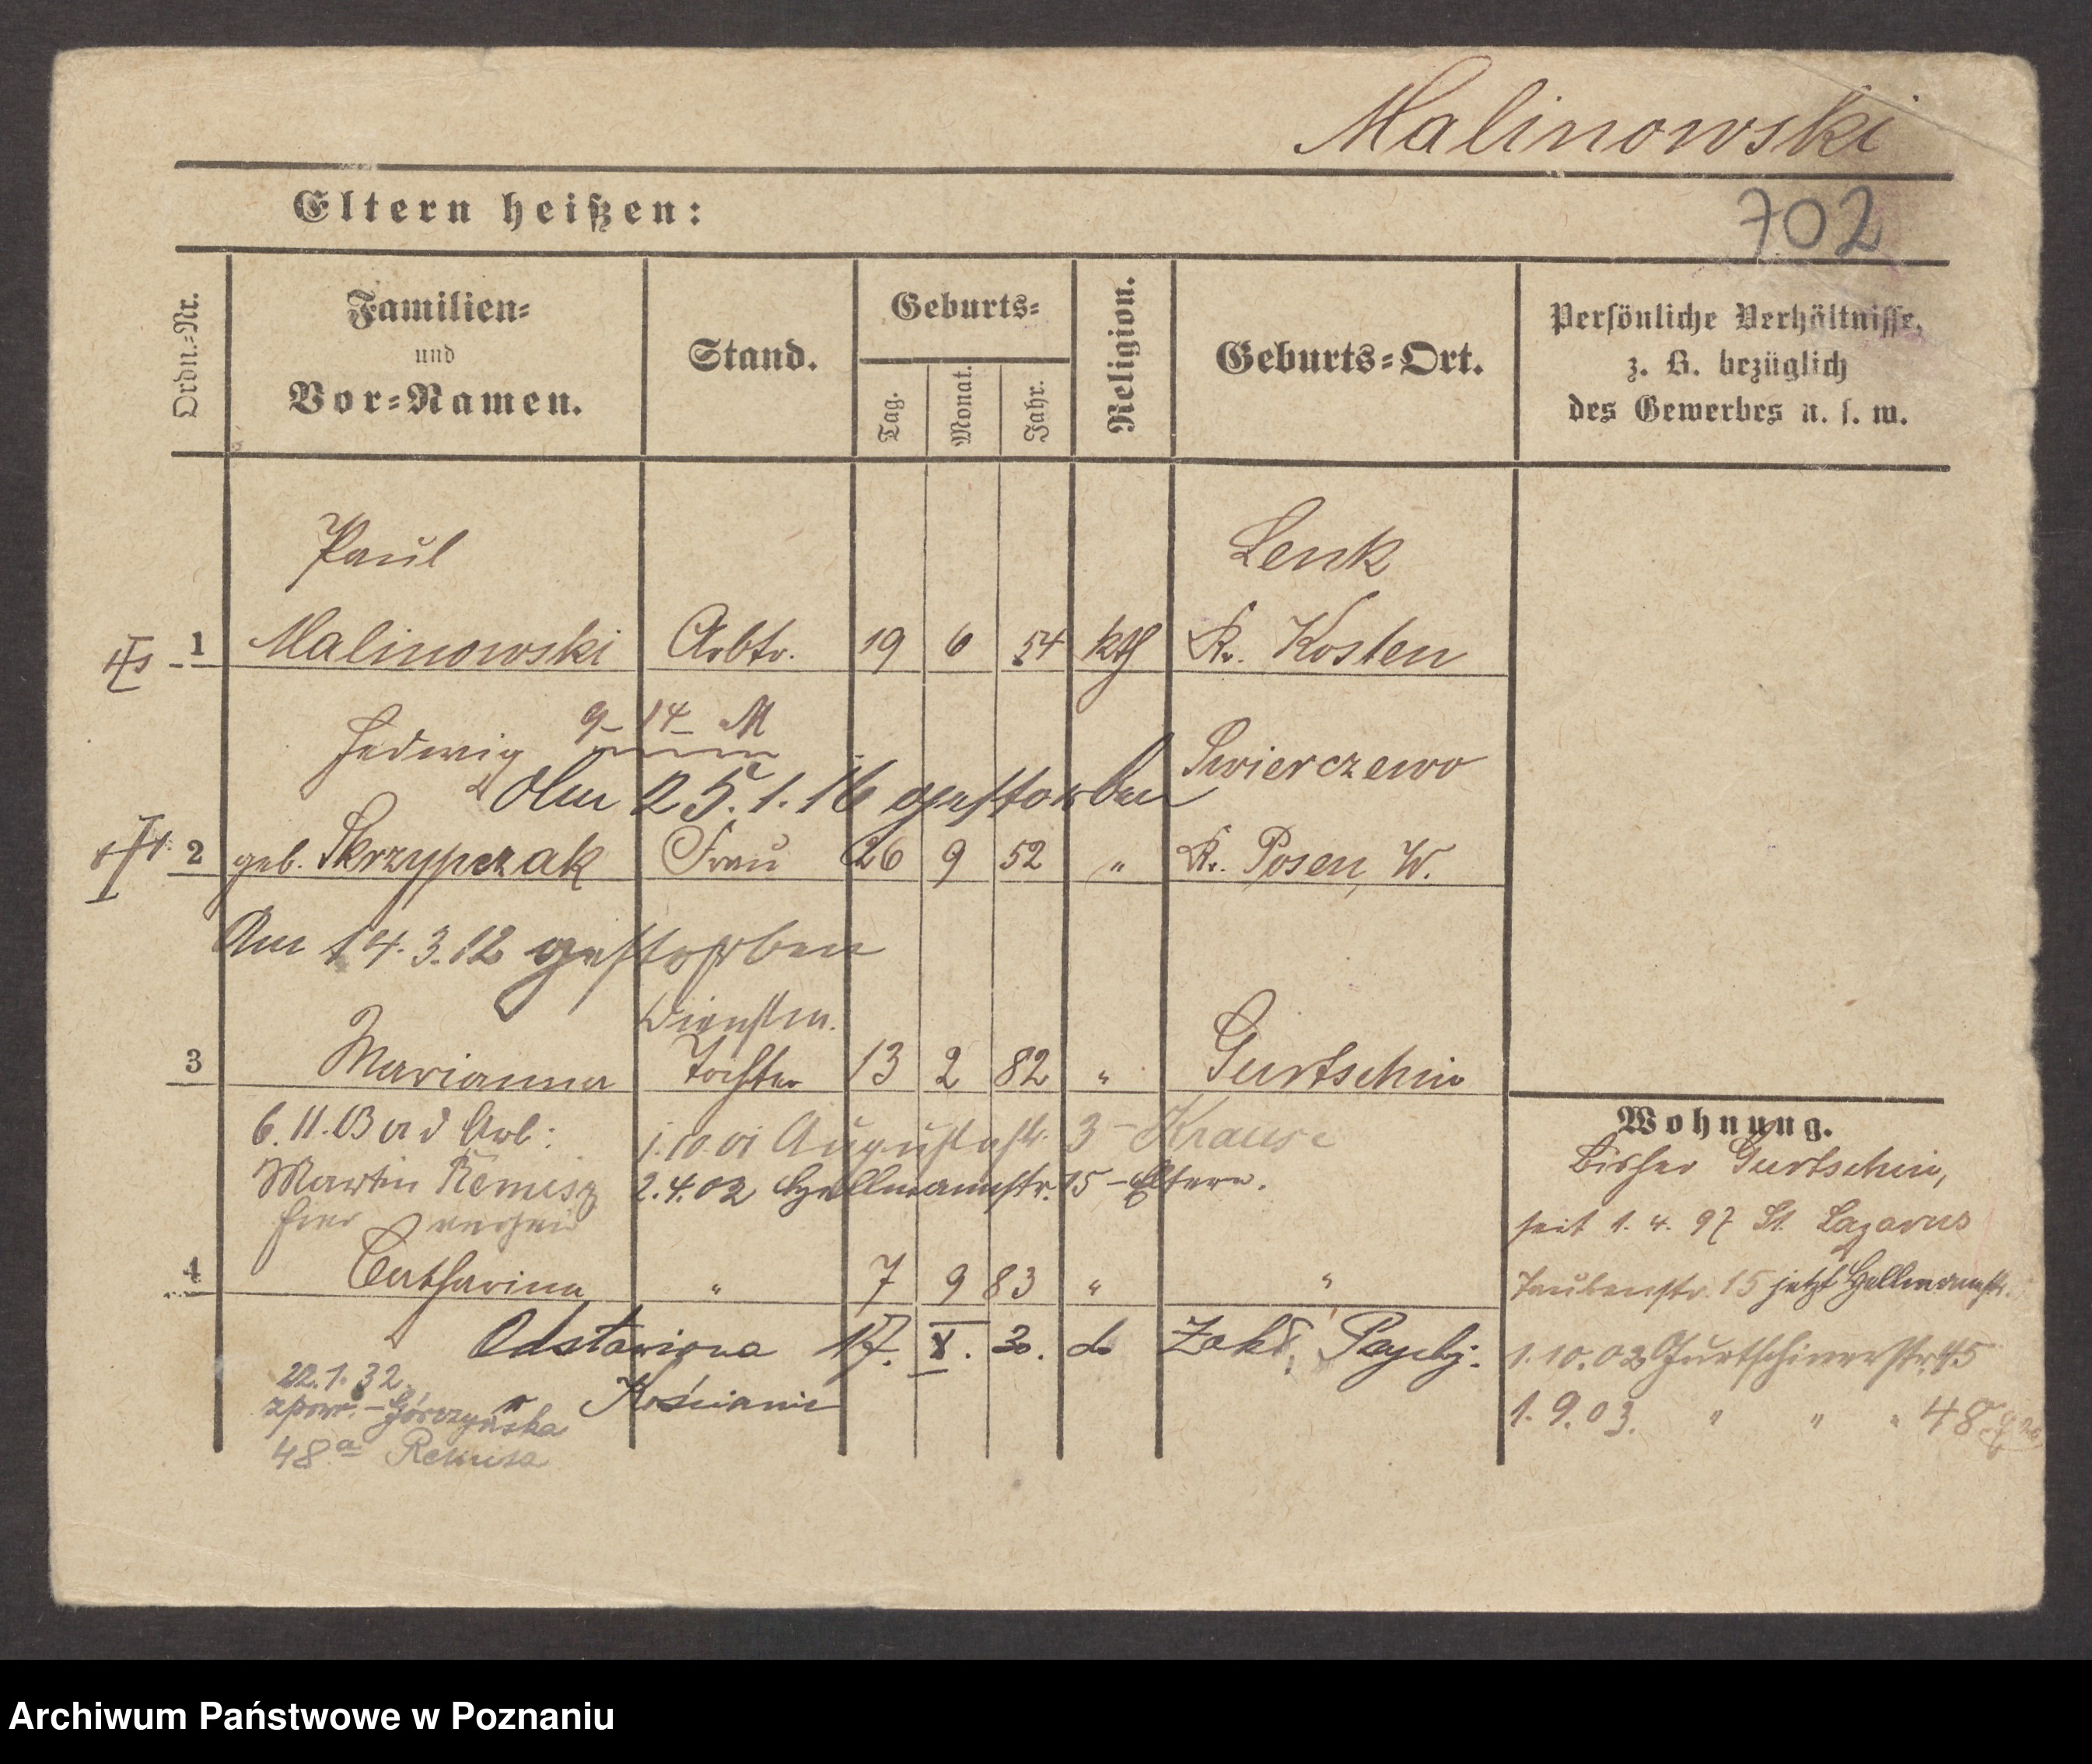 Malinowski
702
Eltern heißen:
Ordn.-Nr.
Familien-
und
Vor-Namen.
Stand.
Geburts-
Tag.
Monat.
Jahr.
Religion.
Geburts-Ort.
Persönliche Verhältnisse,
z. B. bezüglich
des Gewerbes u. s. w.
Paul Lenk
1 Malinowski Arbtr. 19 6 54 kth Kr. Kosten
9-14-M
Hedwig Swierczewo
Am 25.1.16 gestorben
2 geb. Skrzypczak Frau 26 9 52 " Kr. Posen, W.
Am 14.3.12 gestorben
Dienstm.
3 Marianna Tochter 13 2 82 " Gurtschin
6.11.03 a d Arb:
Martin Remisz
hier verheir
1.10.01 Augustastr. 3 - Krause
2.4.02 Hellmannstr. 15 - Eltern.
4 Catharina " 7 9 83 " "
Odstawiona 17. X. 30. do Zakł. Psychj.
w Kościanie
22.1.32
zpow. - Górczyńska
48a Remisz
Wohnung.
Bisher Gurtschin,
seit 1. 4. 97 St. Lazarus
Taubenstr. 15 jetzt Hellmannstr.
1.10.02 Gurtschinerstr. 45
1.9.03. " " " 48
Archiwum Państwowe w Poznaniu